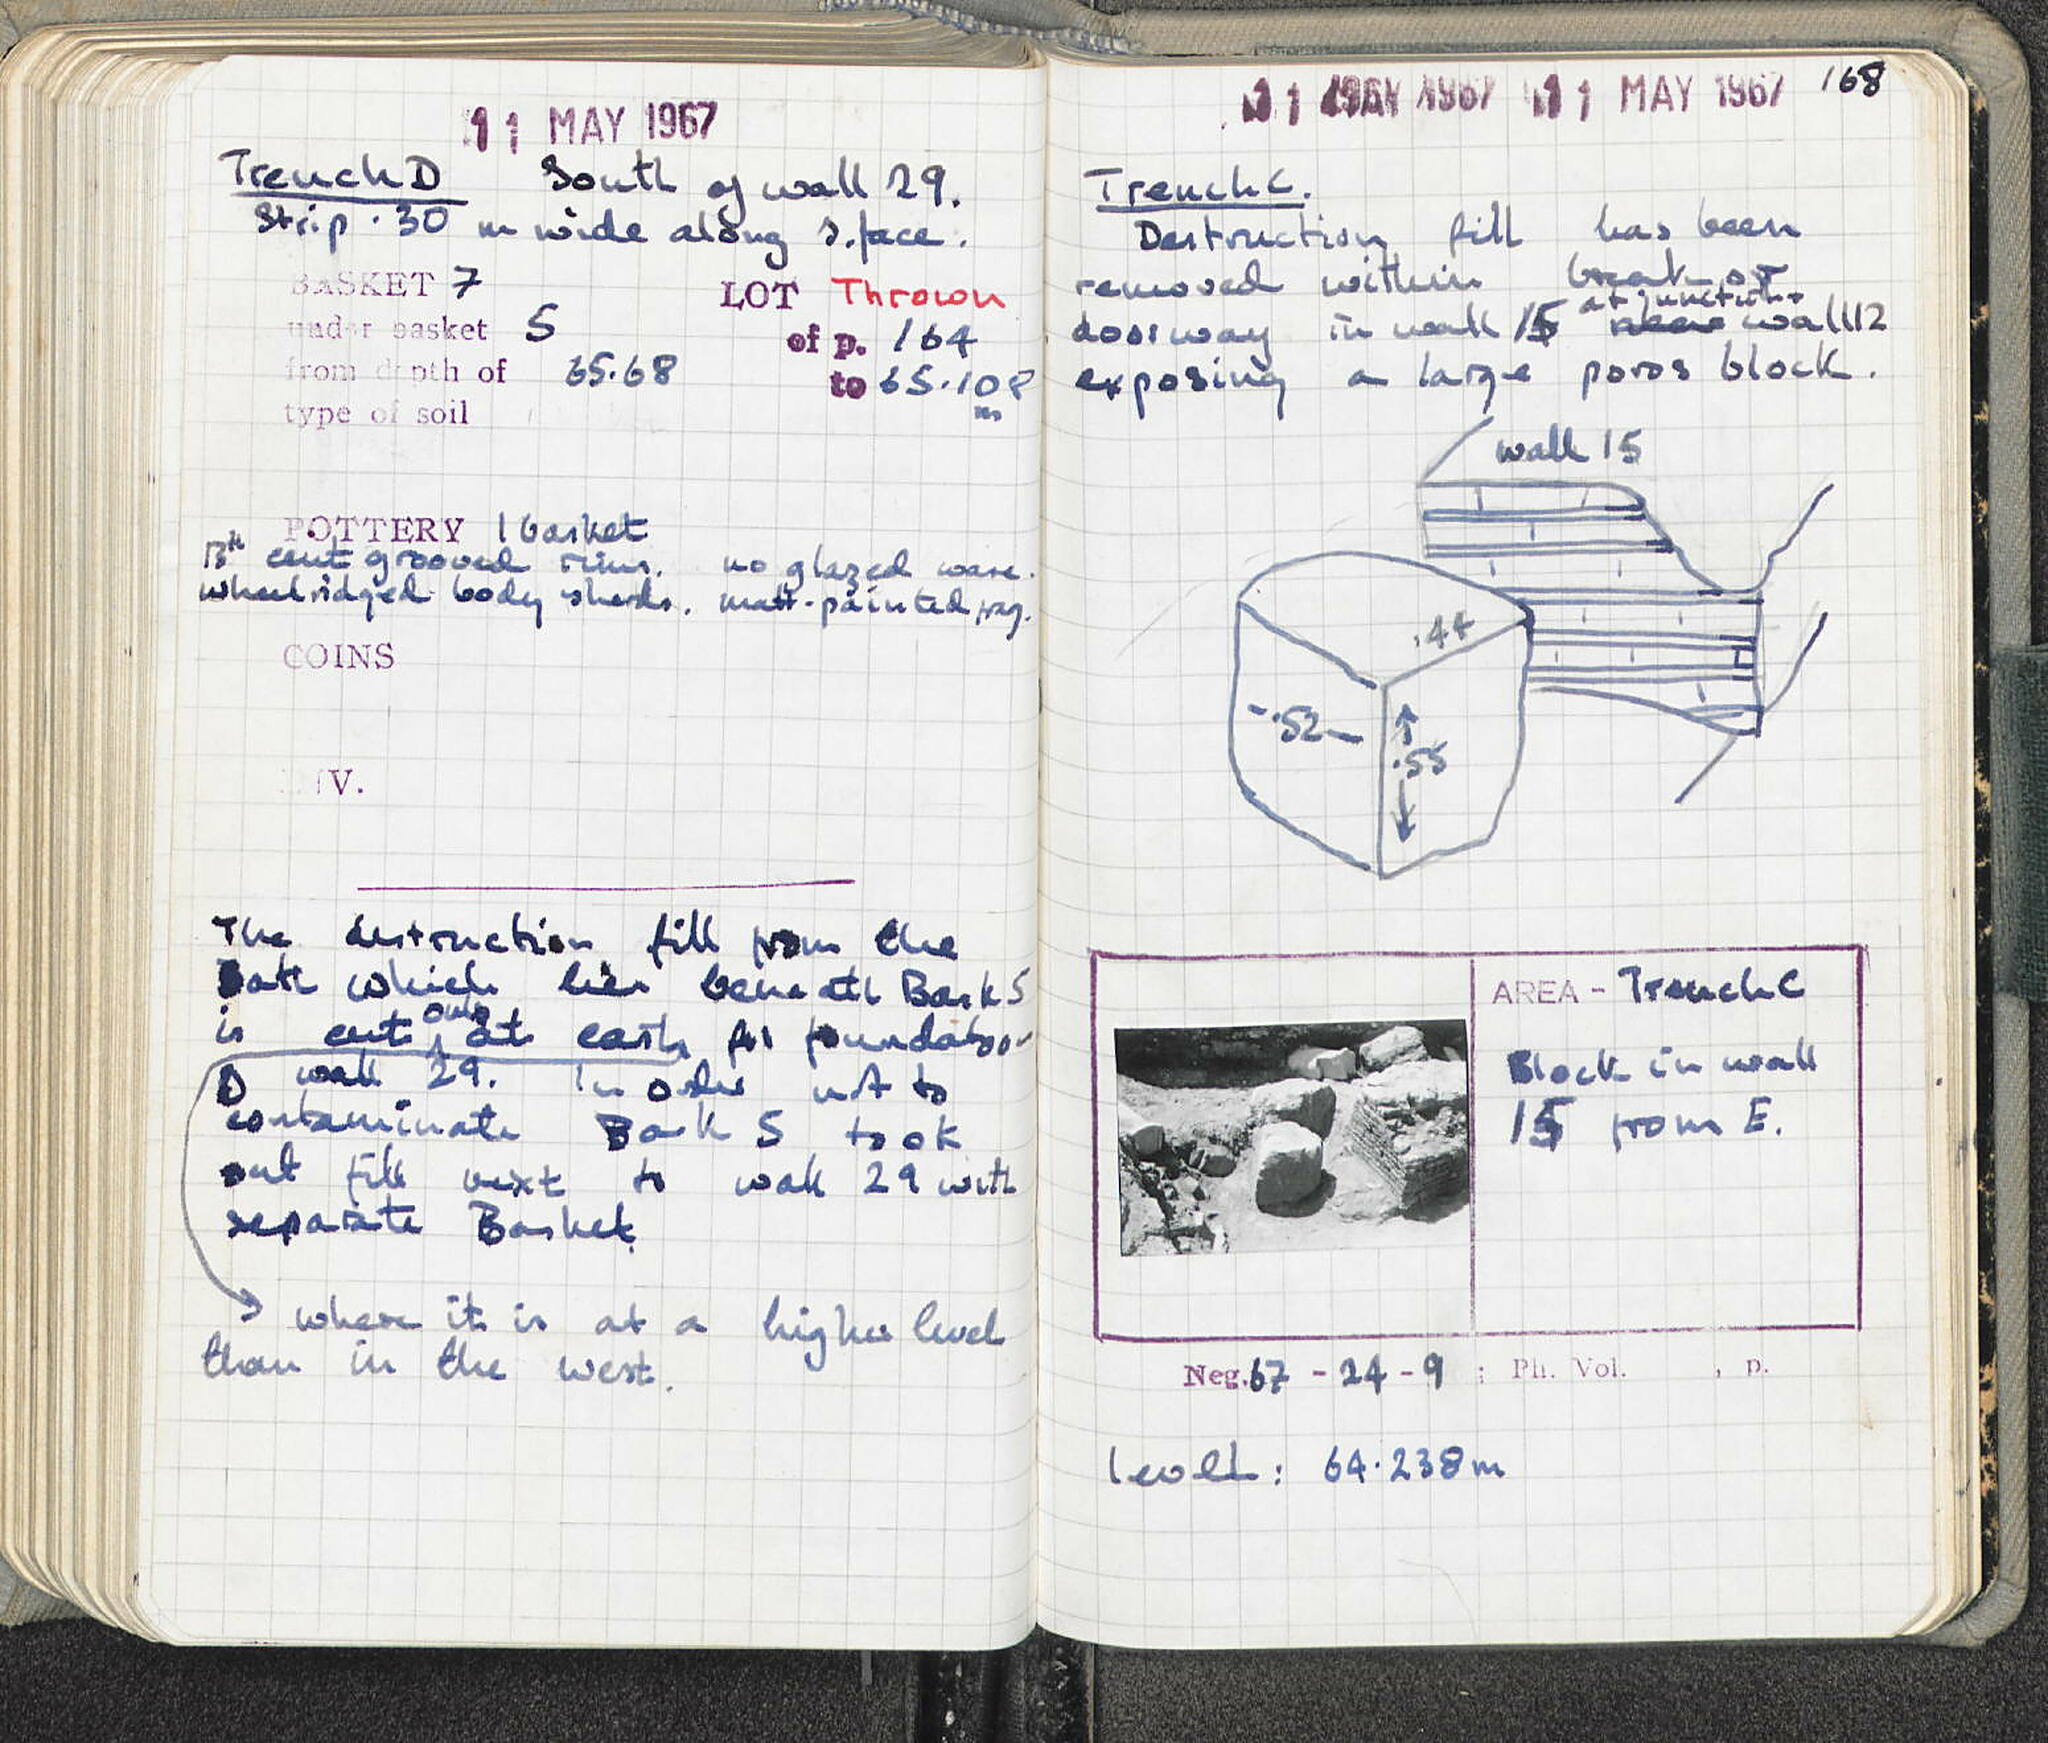 11 MAY 1967
Trench D South of wall 29.
Strip .30 m wide along S. face.
BASKET 7 LOT Thrown
under basket 5 of p. 164
from depth of 65.68 to 65.108 m
type of soil
POTTERY 1 basket
13th cent grooved rims. no glazed ware.
wheelridged body sherds. matt-painted frag.
COINS
INV.
The destruction fill from the
which lies beneath Bask 5
is cut only at east, for foundation
wall 29. In order not to
contaminate Bask 5 took
out fill next to wall 29 with
separate Basket.
where it is at a higher level
than in the west.
11 MAY 1967 11 MAY 1967 168
Trench C.
Destruction fill has been
removed within break or
doorway in wall 15 at junction wall 12
exposing a large poros block.
wall 15
.44
.52
.55
AREA - Trench C
Block in wall
15 from E.
Neg. 67 - 24 - 9 ; Ph. Vol. , p.
level: 64.238m